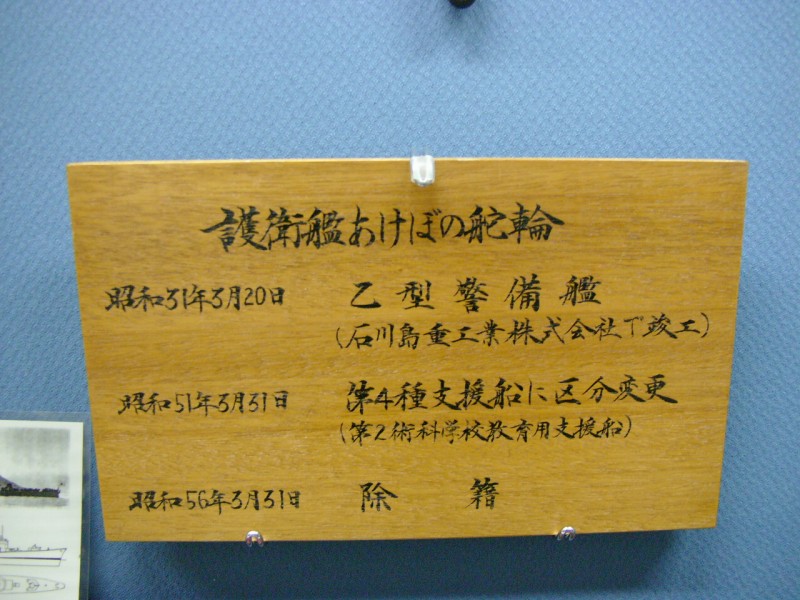 護衛艦あけぼの舵輪
昭和31年3月20日 乙型警備艦
(石川島重工業株式会社で竣工)
昭和51年3月31日 第4種支援船に区分変更
(第2術科学校教育用支援船)
昭和56年3月31日 除籍